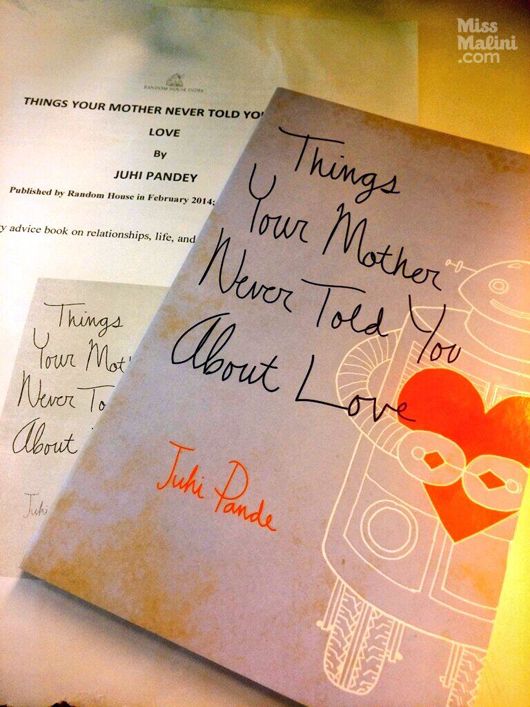 Miss
Malini
.com
RANDOM HOUSE INDIA
THINGS YOUR MOTHER NEVER TOLD YO
LOVE
By
JUHI PANDEY
Published by Random House in February 2014;
y advice book on relationships, life, and
Things
Your Mot
Never To
About
Juhi
Things
Your Mother
Never Told You
About Love
Juhi Pande